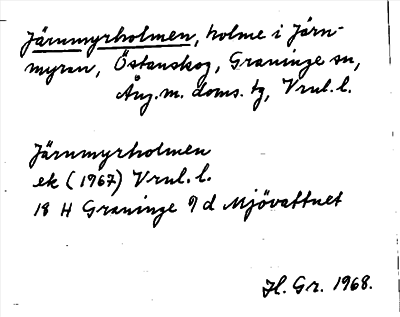 Järnmyrholmen, holme i Järn-
myran, Östanskog, Graninge sn,
Ång. m. doms. tg, Vrnl. l.
Järnmyrholmen
ek (1967) Vrnl. l.
18 H Graninge 9 d Mjövattnet
H. Gr. 1968.